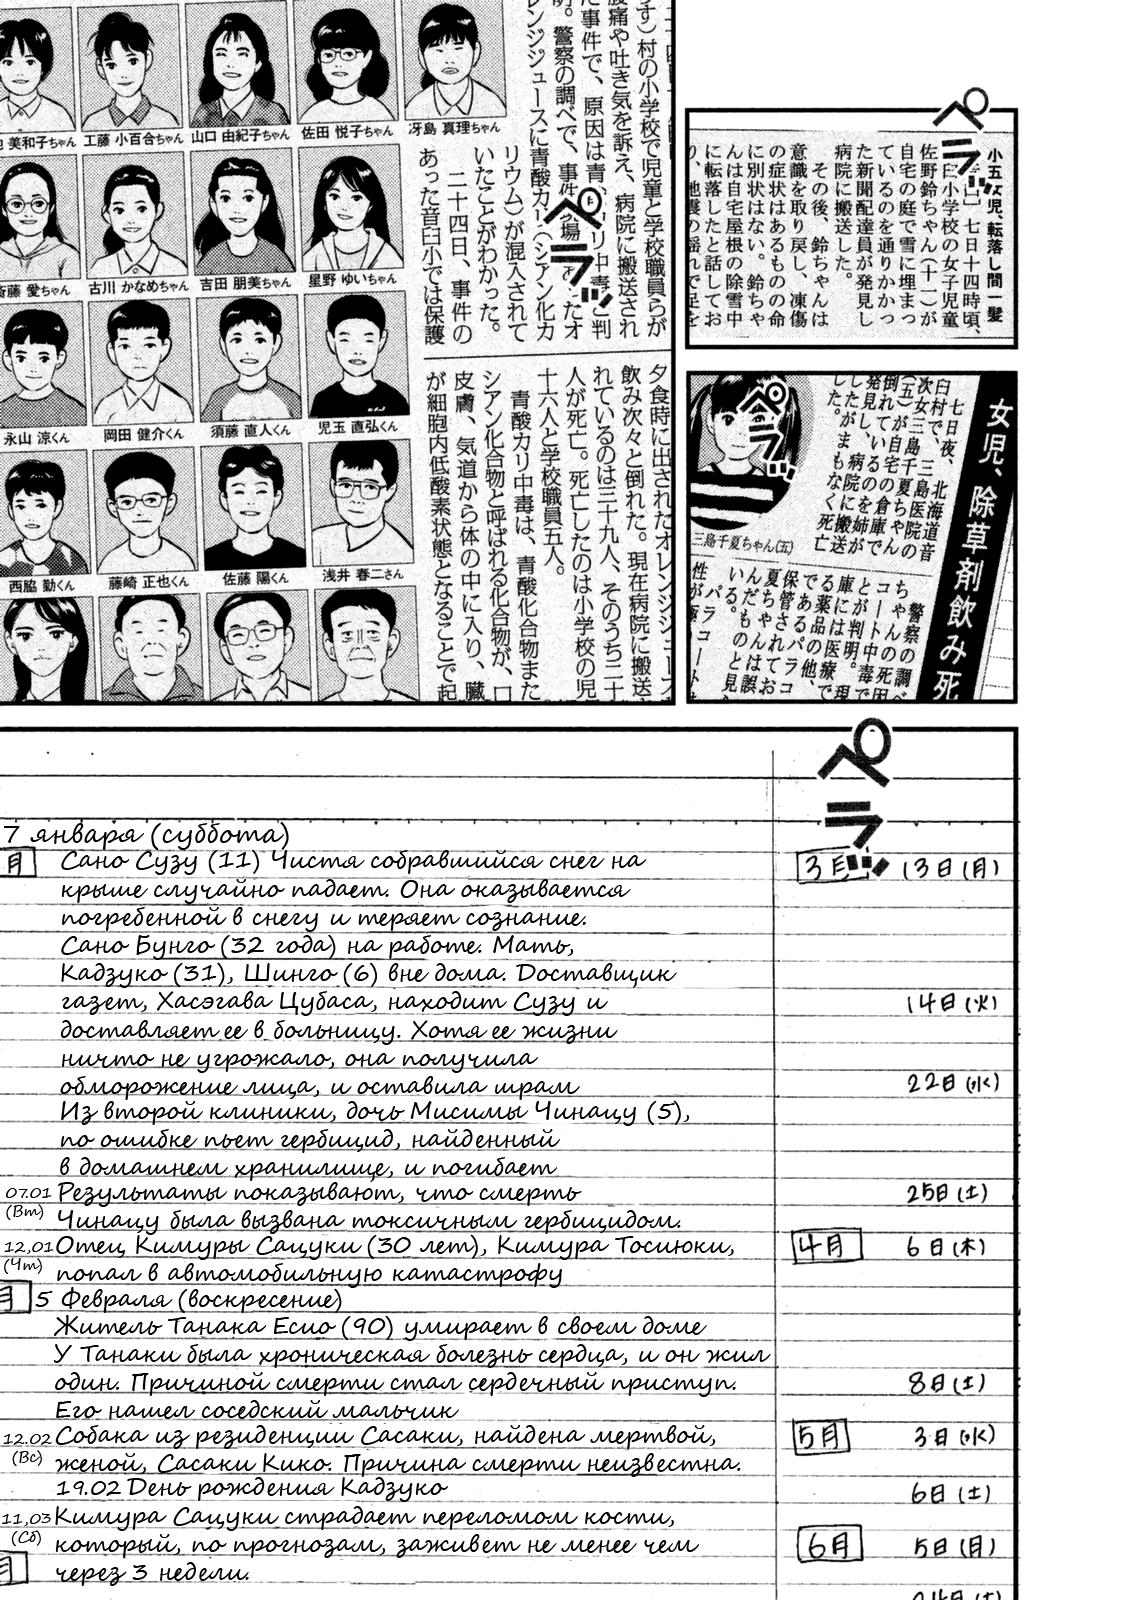 小五女児、転落し間一髪
七日十四時頃、
臼小学校の女子児童
佐野鈴ちゃん(十一)が
自宅の庭で雪に埋まっ
ているのを通りかかっ
た新聞配達員が発見し
病院に搬送した。
その後、鈴ちゃんは
意識を取り戻し、凍傷
の症状はあるものの命
に別状はない。鈴ちゃ
んは自宅屋根の除雪中
に転落したと話してお
り、地震の揺れで足を
ペラッ
女児、除草剤飲み死
七日夜、北海道音
臼村で、三島医院の
次女三島千夏ちゃん
(五)が自宅の倉庫で
倒れているのを姉が
発見し、病院に搬送
したがまもなく死亡
した。
三島千夏ちゃん(五)
警察の調べ
ちゃんの死因
コート中毒で
とが判明。現
庫には医療で
る薬品の他、
であるパラコ
保管されてお
夏ちゃんは誤
んだものと見
いる。
パラコート
ペラッ
す)村の小学校で児童と学校職員らが
腹痛や吐き気を訴え、病院に搬送され
た事件で、原因は青
リ中毒と判
明。警察の調べで、事件現場
あったオ
レンジジュースに青酸カリ(シアン化カ
リウム)が混入されて
いたことがわかった。
二十四日、事件の
あった音臼小では保護
ペラッ
夕食時に出されたオレンジジュース
飲み次々と倒れた。現在病院に搬送
れているのは三十九人、そのうち二十
人が死亡。死亡したのは小学校の児
十六人と学校職員五人。
青酸カリ中毒は、青酸化合物また
シアン化合物と呼ばれる化合物が、口
皮膚、気道から体の中に入り、臓
が細胞内低酸素状態となることで起
冴島 真理ちゃん
佐田 悦子ちゃん
山口 由紀子ちゃん
工藤 小百合ちゃん
美和子ちゃん
星野 ゆいちゃん
吉田 朋美ちゃん
古川 かなめちゃん
斎藤 愛ちゃん
児玉 直弘くん
須藤 直人くん
岡田 健介くん
永山 涼くん
浅井 春二さん
佐藤 陽くん
藤崎 正也くん
西脇 勤くん
ペラッ
3月 13日(月)
14日(火)
22日(水)
25日(土)
4月 6日(木)
8日(土)
5月 3日(水)
6日(土)
6月 5日(月)
24日(土)
7 января (суббота)
月 Сано Сузу (11) Чистя собравшийся снег на
крыше случайно падает. Она оказывается
погребенной в снегу и теряет сознание.
Сано Бунго (32 года) на работе. Мать,
Кадзуко (31), Шинго (6) вне дома. Доставщик
газет, Хасэгава Цубаса, находит Сузу и
доставляет ее в больницу. Хотя ее жизни
ничто не угрожало, она получила
обморожение лица, и оставила шрам
Из второй клиники, дочь Мисимы Чинацу (5),
по ошибке пьет гербицид, найденный
в домашнем хранилище, и погибает
07.01 (Вт) Результаты показывают, что смерть
Чинацу была вызвана токсичным гербицидом.
12,01 (Чт) Отец Кимуры Сацуки (30 лет), Кимура Тосиюки,
попал в автомобильную катастрофу
月 5 Февраля (воскресение)
Житель Танака Есио (90) умирает в своем доме
У Танаки была хроническая болезнь сердца, и он жил
один. Причиной смерти стал сердечный приступ.
Его нашел соседский мальчик
12.02 (Вс) Собака из резиденции Сасаки, найдена мертвой,
женой, Сасаки Кико. Причина смерти неизвестна.
19.02 День рождения Кадзуко
11,03 (Сб) Кимура Сацуки страдает переломом кости,
который, по прогнозам, заживет не менее чем
月 через 3 недели.